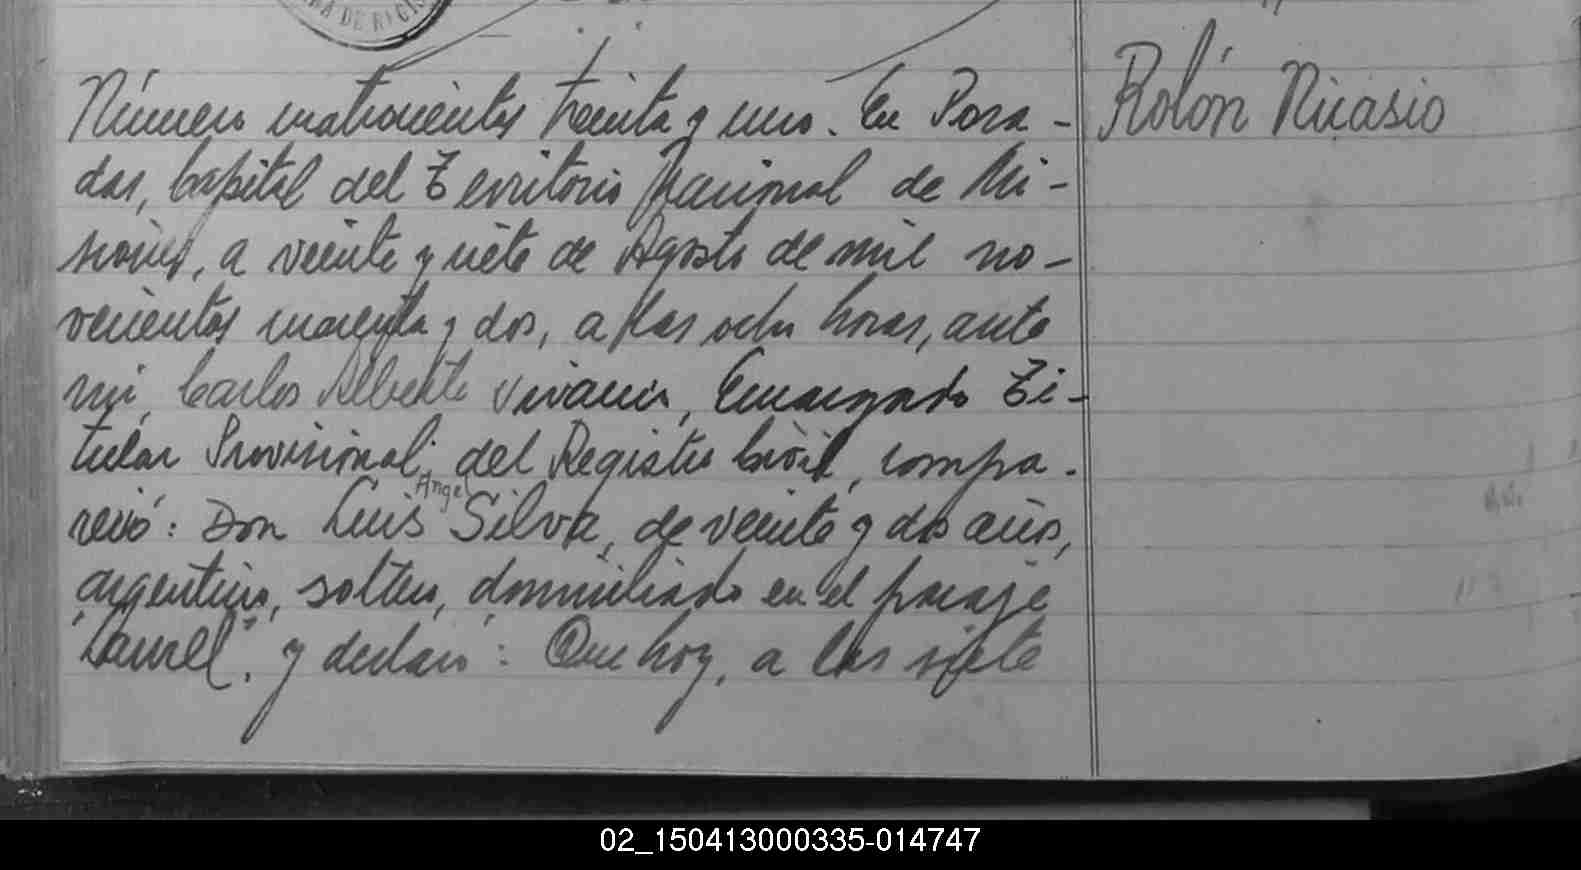 Número cuatrocientos treinta y uno. En Posa-
das, Capital del Territorio Nacional de Mi-
siones, a veinte y siete de Agosto de mil no-
vecientos cuarenta y dos, a las ocho horas, ante
mi, Carlos Alberto Vivanco, Encargado Ti-
tular Provisional, del Registro Civil, compa-
reció: Don Luis Angel Silva, de veinte y dos años,
argentino, soltero, domiciliado en el paraje
"Laurel", y declaró: Que hoy, a las siete
Rolón Nicasio
02_150413000335-014747